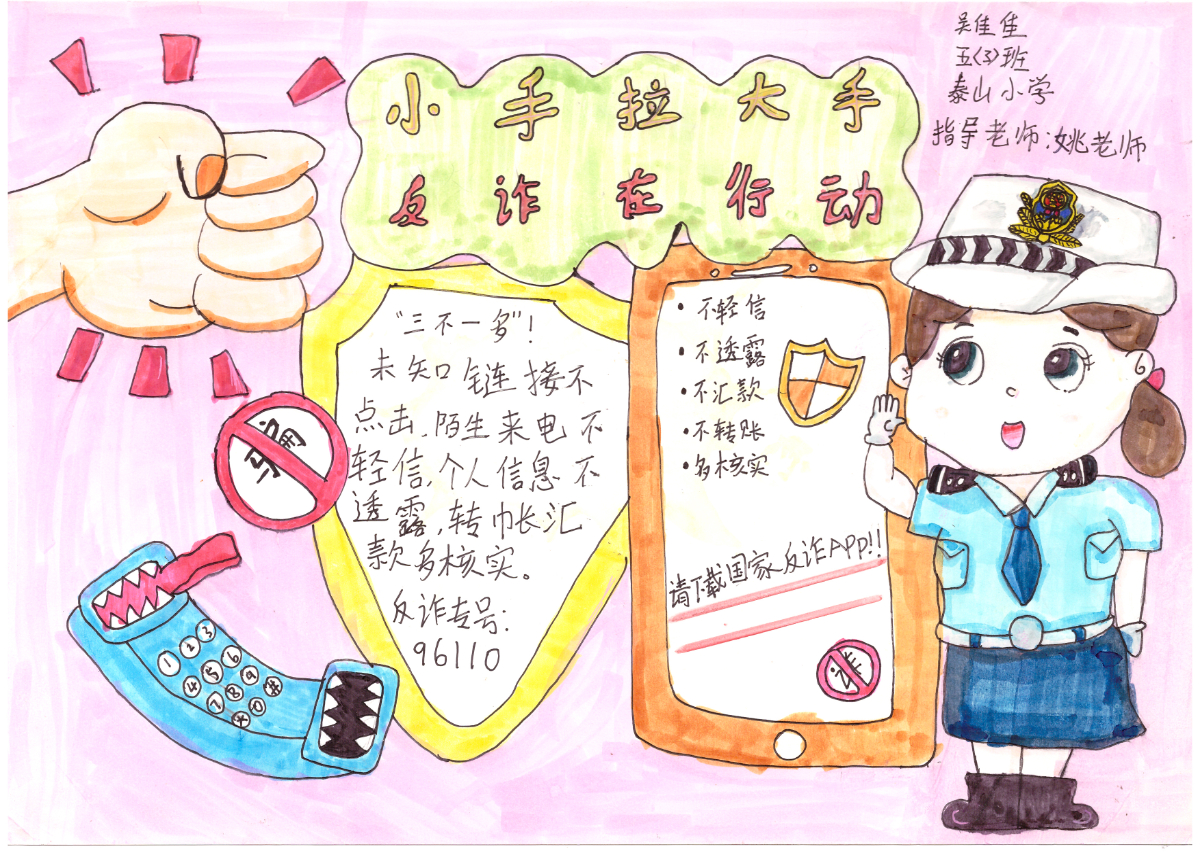 吴佳佳
五(3)班
泰山小学
指导老师:姚老师
小手拉大手
反诈在行动
"三不一多"!
未知链接不
点击,陌生来电不
轻信,个人信息不
透露,转帐汇
款多核实。
反诈专号:
96110
骗
1 2 3
4 5 6
7 8 9 #
* 0
·不轻信
·不透露
·不汇款
·不转账
·多核实
请下载国家反诈APP!!
诈